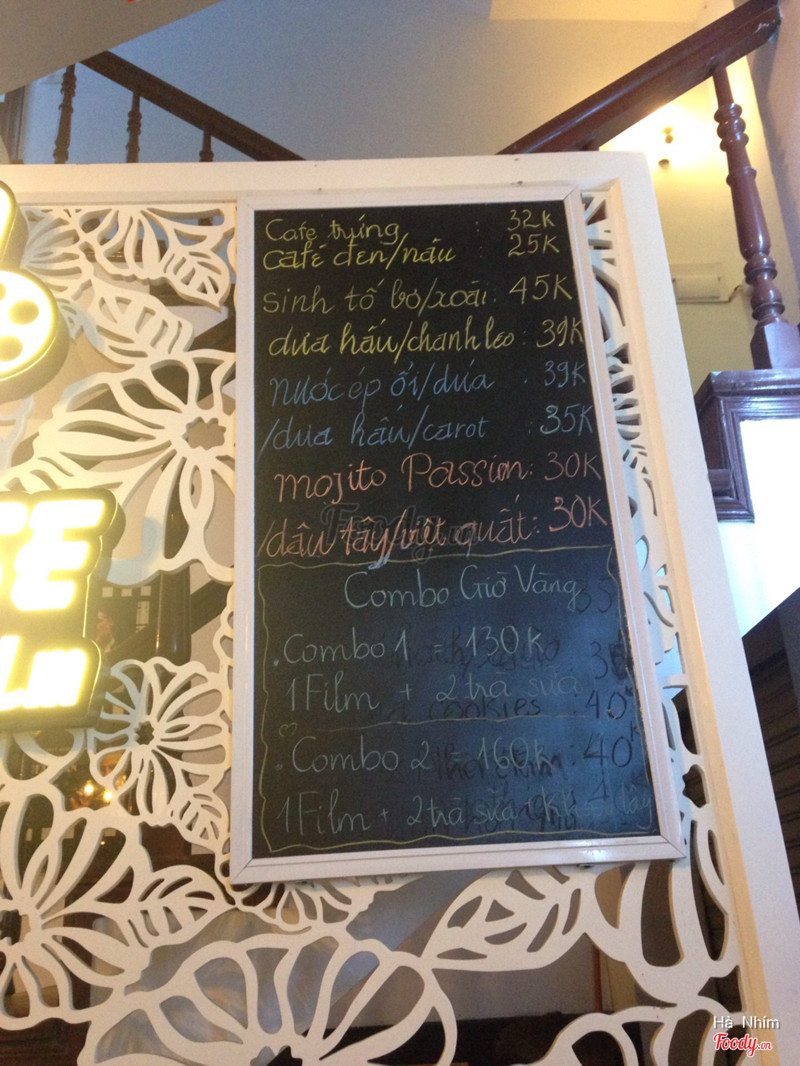 Cafe trứng : 32K
Café đen/nâu : 25K
Sinh tố bơ/xoài : 45K
dưa hấu/chanh leo : 39K
Nước ép ổi/dứa : 39K
/dưa hấu/carot : 35K
Mojito Passion : 30K
/dâu tây/việt quất : 30K
Combo Giờ Vàng
. Combo 1 = 130K
1 Film + 2 trà sữa
cookies 40K
. Combo 2 = 160K : 40K
1 Film + 2 trà sữa
Lm
Foody.vn
Hà Nhím
Foody.vn